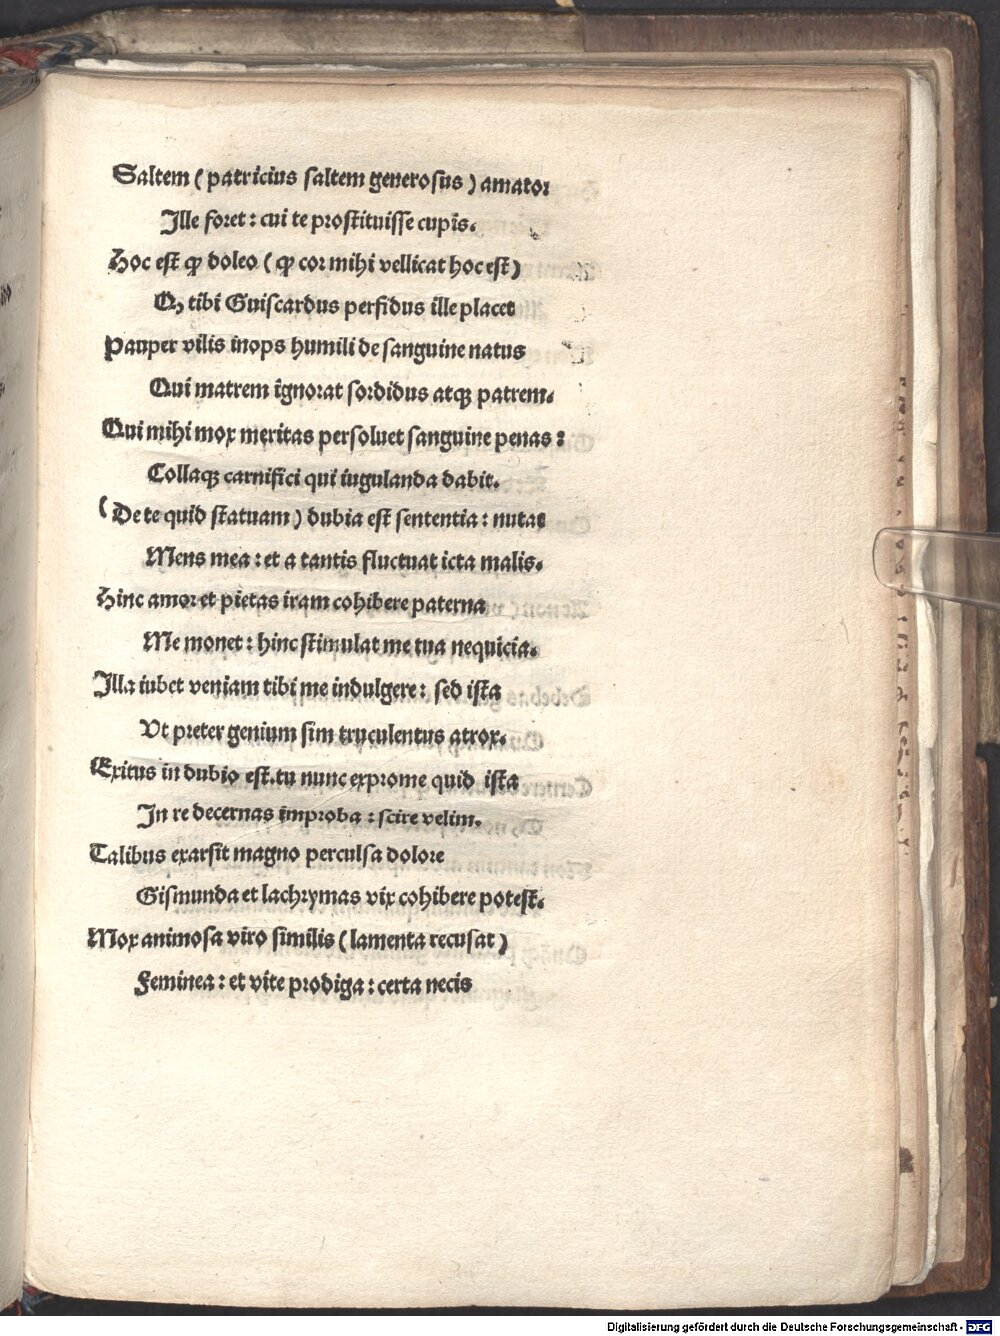 Saltem ( patricius saltem generosus ) amator
Ille foret : cui te prostituisse cupīs.
Hoc est ꝙ doleo ( ꝙ cor mihi vellicat hoc est )
Qꝫ tibi Guiscardus perfidus ille placet
Pauper vilis inops humili de sanguine natus
Qui matrem ignorat sordidus atqꝫ patrem.
Qui mihi mox meritas persoluet sanguine penas :
Collaqꝫ carnifici qui iugulanda dabit.
( De te quid statuam ) dubia est sententia : nutat
Mens mea : et a tantis fluctuat icta malis.
Hinc amor et pietas iram cohibere paterna
Me monet : hinc stimulat me tua nequicia.
Illa iubet veniam tibi me indulgere : sed ista
Vt preter genium sim truculentus atrox.
Exitus in dubio est. tu nunc exprome quid ista
In re decernas improba : scire velim.
Talibus exarsit magno perculsa dolore
Gismunda et lachrymas vix cohibere potest.
Mox animosa viro similis ( lamenta recusat )
Feminea : et vite prodiga : certa necis
Digitalisierung gefördert durch die Deutsche Forschungsgemeinschaft - DFG